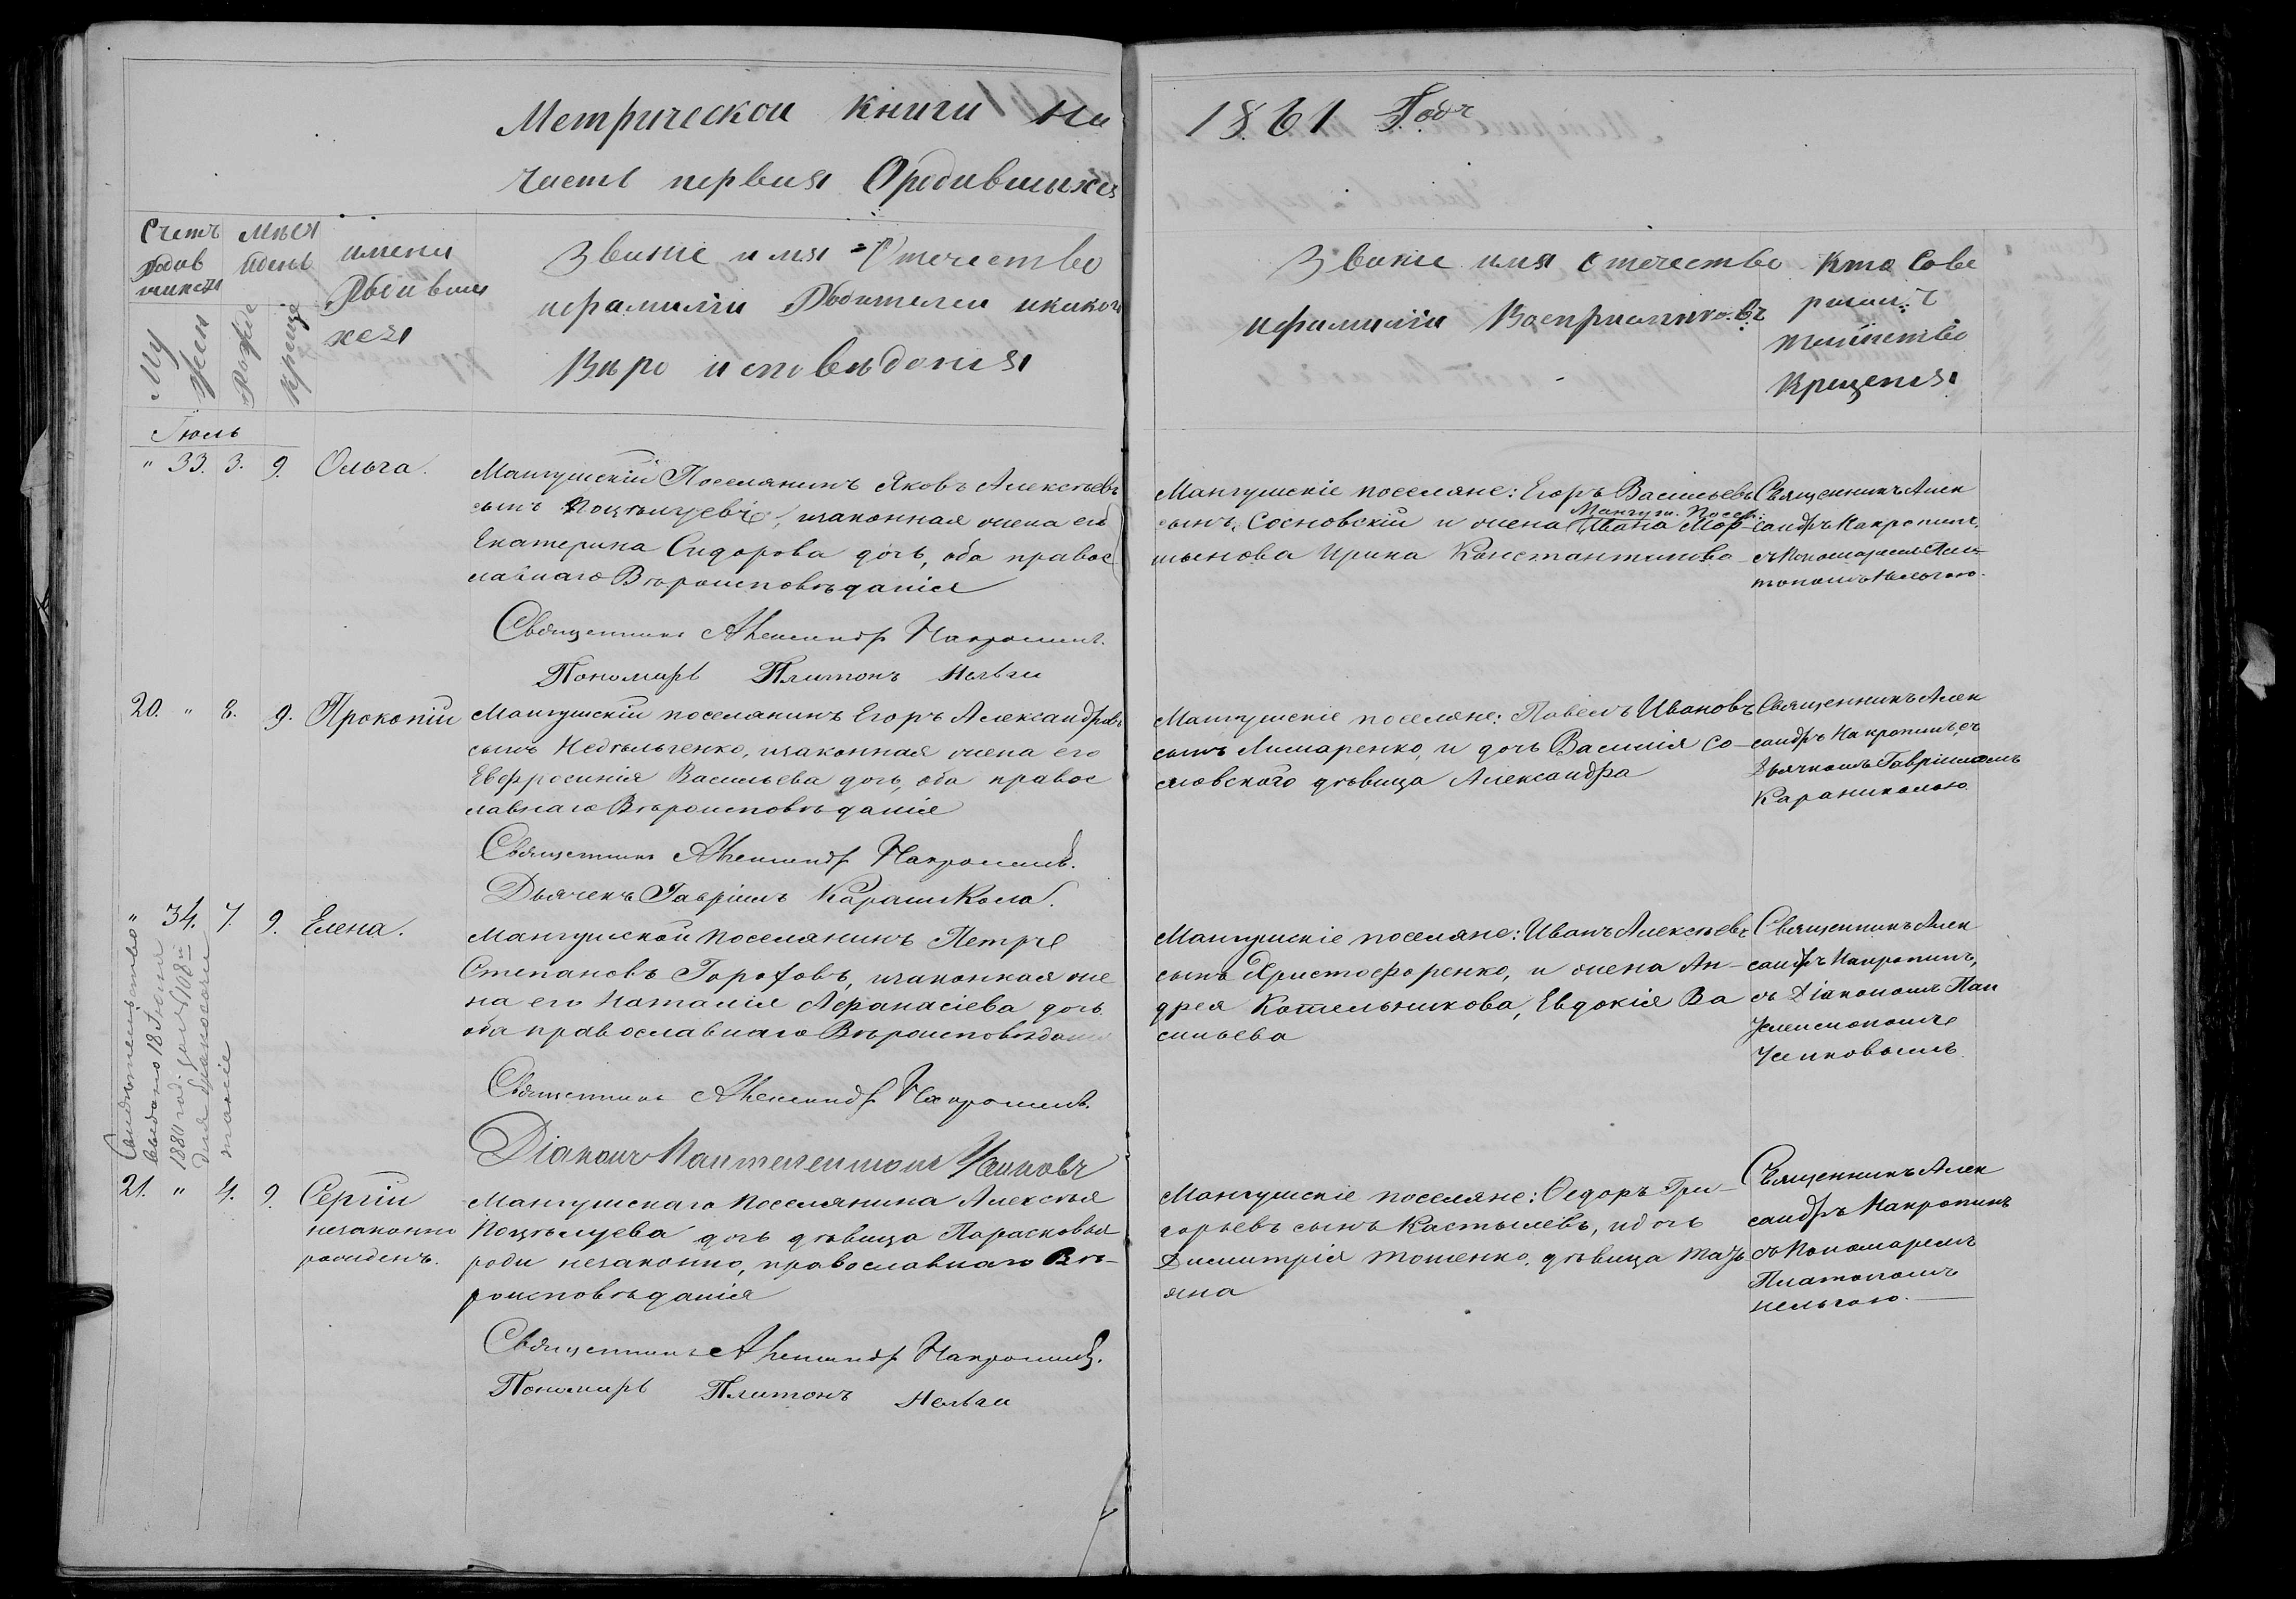 Метрической книги на
1861 Годъ
часть первая О родившихся
Счетъ
родив
шихся
Му
Жен
Мѣся
и день
Рожде
Креще
имени
Родивши
хся
Званіе имя Отечество
и фамиліи Родителей и какой
Вѣро исповѣдонія
Званіе имя отечество
и фамиліи Воспріемниковъ
Кто Сове
ршилъ
таинство
Крещенія
Іюль
" 33. 3. 9. Ольга.
Мангушскій Поселянинъ Яковъ Алексѣевъ
сынъ Поцѣлуевъ, и законная жена его
Екатерина Сидорова дочь, оба правос
лавнаго Вѣроисповѣданія
Священникъ Александр Накропинъ.
Пономарь Платонъ Нельга
Мангушскіе поселяне: Егоръ Васильевъ
сынъ Сосновскій и жена Мангуш. Посел. Ивана Мор-
шынова Ирина Константинова
Священникъ Алек
сандръ Накропинъ,
съ Пономаремъ Пла
тономъ Нельгою.
20. " 8. 9. Прокопій
Мангушскій поселянинъ Егоръ Александровъ
сынъ Недѣльченко, и законная жена его
Евфросинія Васильева дочь, оба правос
лавнаго Вѣроисповѣданія
Священникъ Александр Накропинъ.
Дьячекъ Гавріилъ Караникола.
Мангушскіе поселяне: Павелъ Ивановъ
сынъ Лимаренко, и дочь Василія Со-
сновского дѣвица Александра
Священникъ Алек
сандръ Накропинъ, съ
Дьячкомъ Гавріиломъ
Караниколою
" 34. 7. 9. Елена.
Свидѣтельство
выдано 18 Іюня
1880 год. за № 108м
для бракосоче
танія
Мангушской поселянинъ Петръ
Степановъ Горофовъ, и законная же
на его Наталія Афанасіева дочь
оба православнаго Вѣроисповѣдані
Священникъ Александр Накропинъ.
Діаконъ Пантелеимонъ Чепковъ
Мангушскіе поселяне: Иванъ Алексѣевъ
сынъ Христофоренко, и жена Ан-
дрея Котельникова, Евдокія Ва
сильева
Священникъ Алек
сандръ Накропинъ,
съ Діакономъ Пан
телеимономъ
Чепковымъ
21. " 4. 9. Сергій
незаконно
рожденъ.
Мангушскаго Поселянина Алексѣя
Поцѣлуева дочь дѣвица Парасковья
роди незаконно, православнаго Вѣ-
роисповѣданія
Священникъ Александр Накропинъ.
Пономарь Платонъ Нельга
Мангушскіе поселяне: Ѳедоръ Гри-
горьевъ сынъ Кастышевъ, и дочь
Димитрія Тошенко, дѣвица Тать
яна
Священникъ Алек
сандръ Накропинъ
съ Пономаремъ
Платономъ
Нельгою.